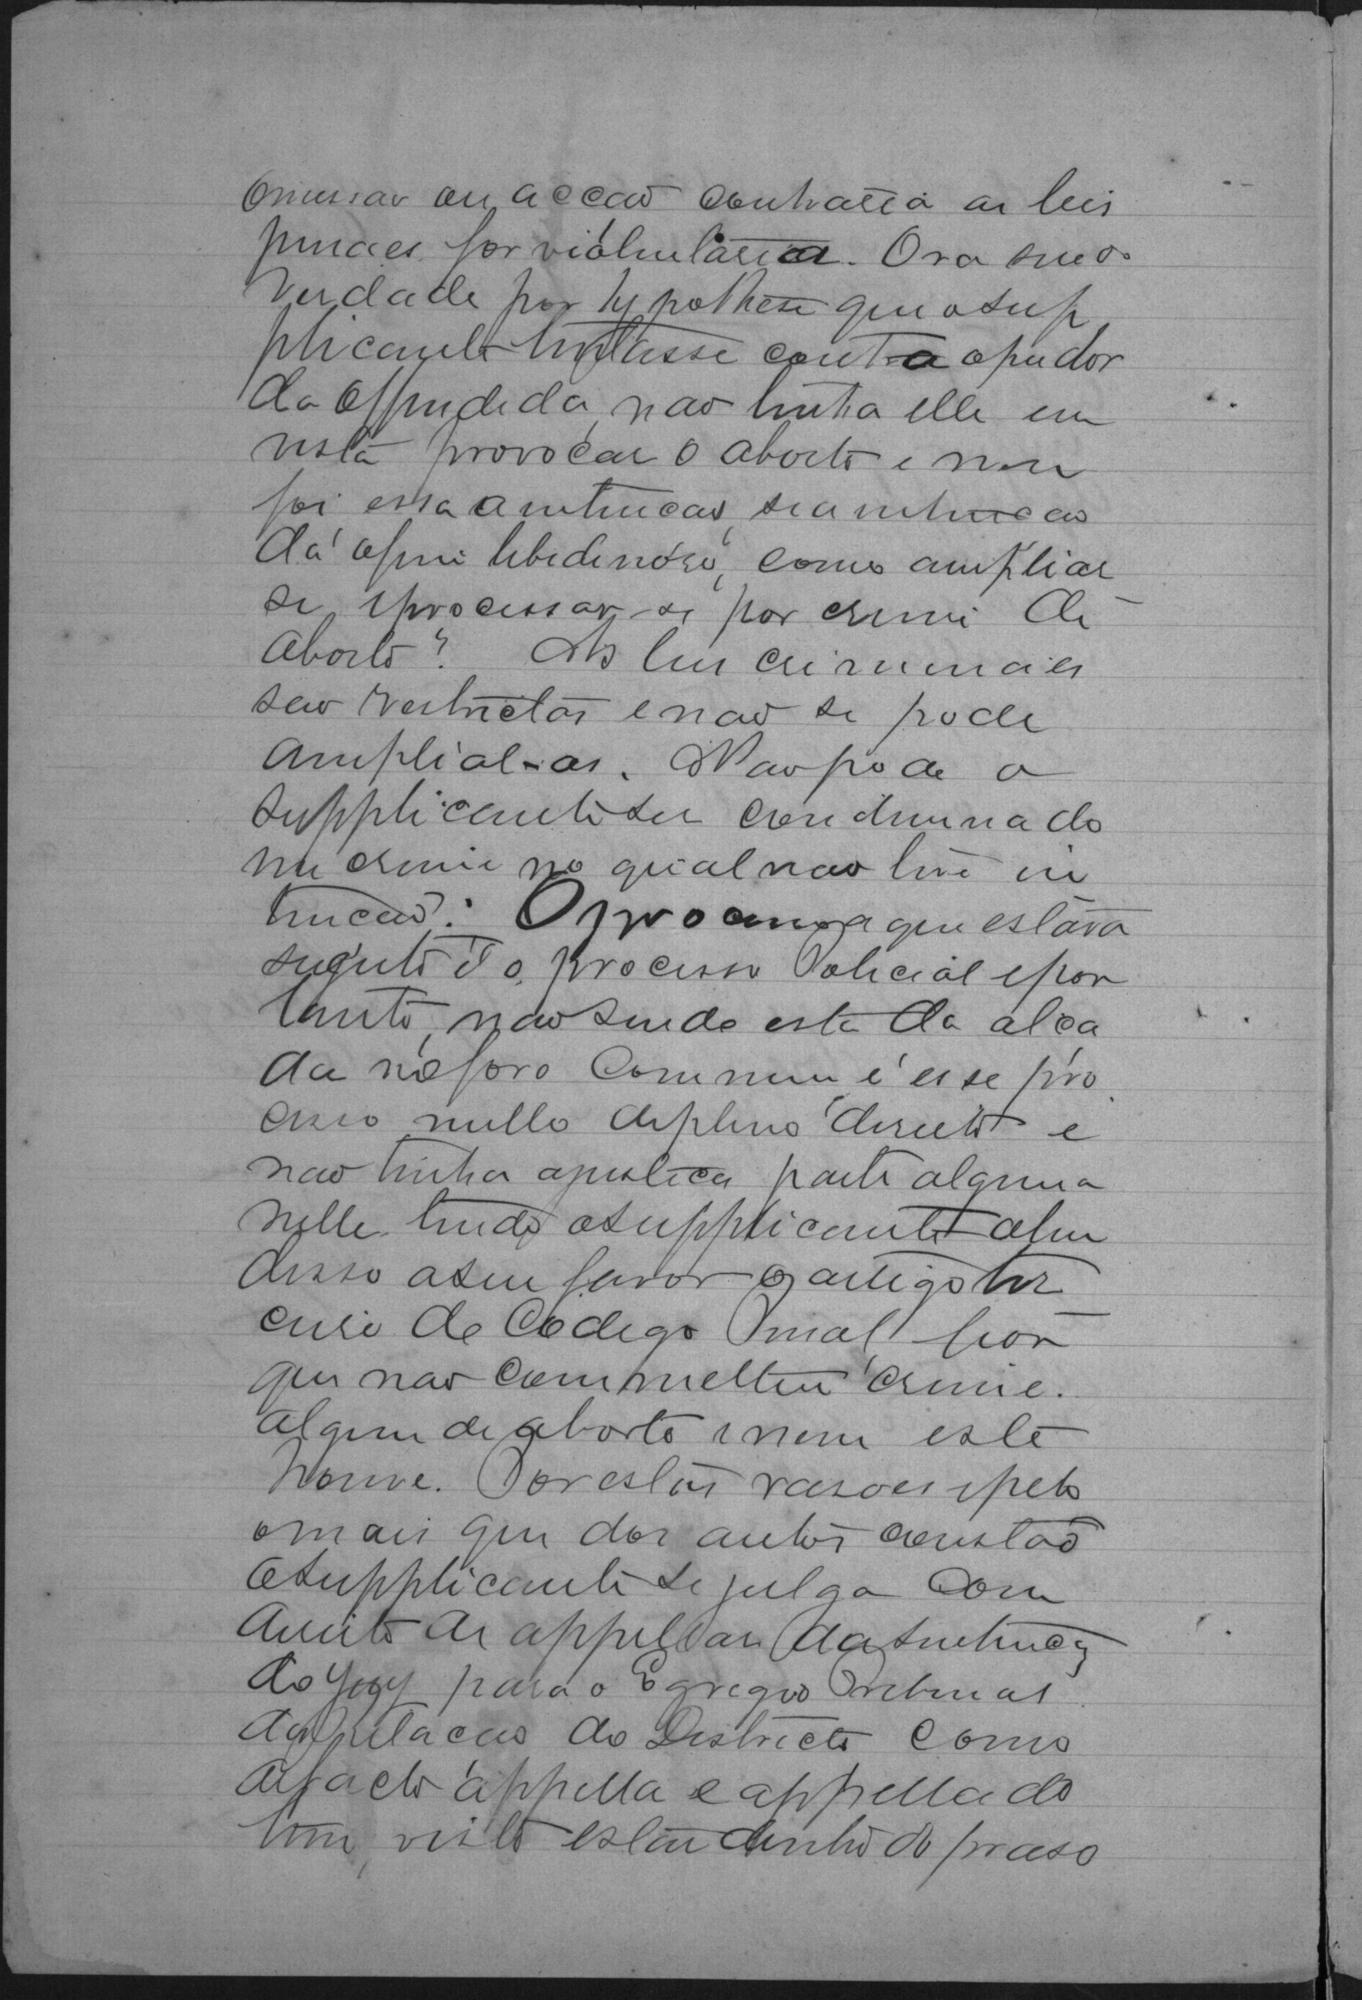 omissão ou acção contraria as leis
penaes for violuntaria. Ora sendo
verdade por hypothese que o sup
plicante tentasse contra o pudor
da offendida, nao tinha elle em
vista provocar o aborto e nem
foi essa a intencao, se a intencao
da' o fim libedinoso, como ampliar
se, e processar-se por crime de
aborto? As leis criminaes
sao restrictas e nao se pode
amplial-as. Nao pode o
supplicante ser condemnado
num crime no qual nao teve in
tencao. O processo a que estava
sugeito é o processo Policial e por
tanto, nao sendo este da alca
da no foro Commum é esse pro
cesso nullo de pleno direito e
nao tinha a justica parte alguma
nelle tendo o supplicante alem
disso a seu favor o artigo
de Codego Penal, por
que nao commetteu crime
algum de aborto e nem este
houve. Por estas rasoes e pelo
o mais que dos autos constao
o supplicante se julga com
direito de appellar da sentenca
do Juiz para o Egregio Tribunal
da Relacao do Districto como
de facto appella e appellado
tem, visto estar dentro do praso